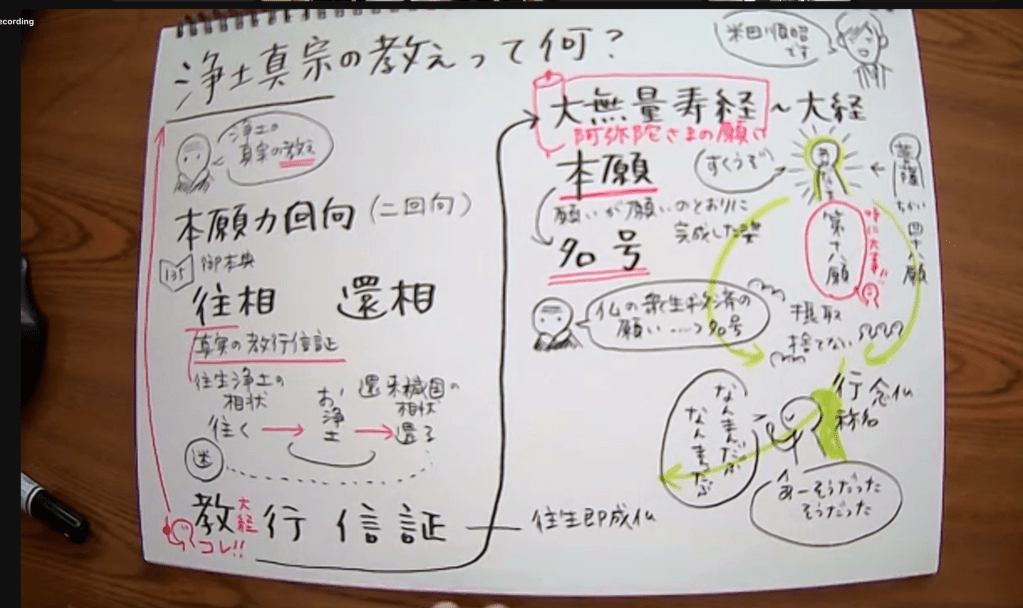 recording
浄土真宗の教えって何?
米田順昭
です
浄土の
真実の教え
本願力回向(二回向)
135
御本典
往相 還相
真実の教行信証
往生浄土の
相状
往く
お浄土
還来穢国の
相状
還る
迷
教行信証
大経
コレ!!
往生即成仏
大無量寿経~大経
阿弥陀さまの願い
本願
すくうぞ
願いが願いのとおりに
完成した姿
名号
仏の衆生救済の
願い…→名号
あみださま
菩薩
ちかい
四十八願
第十八願
特に大事!!
摂取
捨てない
行 念仏
称名
なんまんだぶ
なんまんだぶ
あーそうだった
そうだった